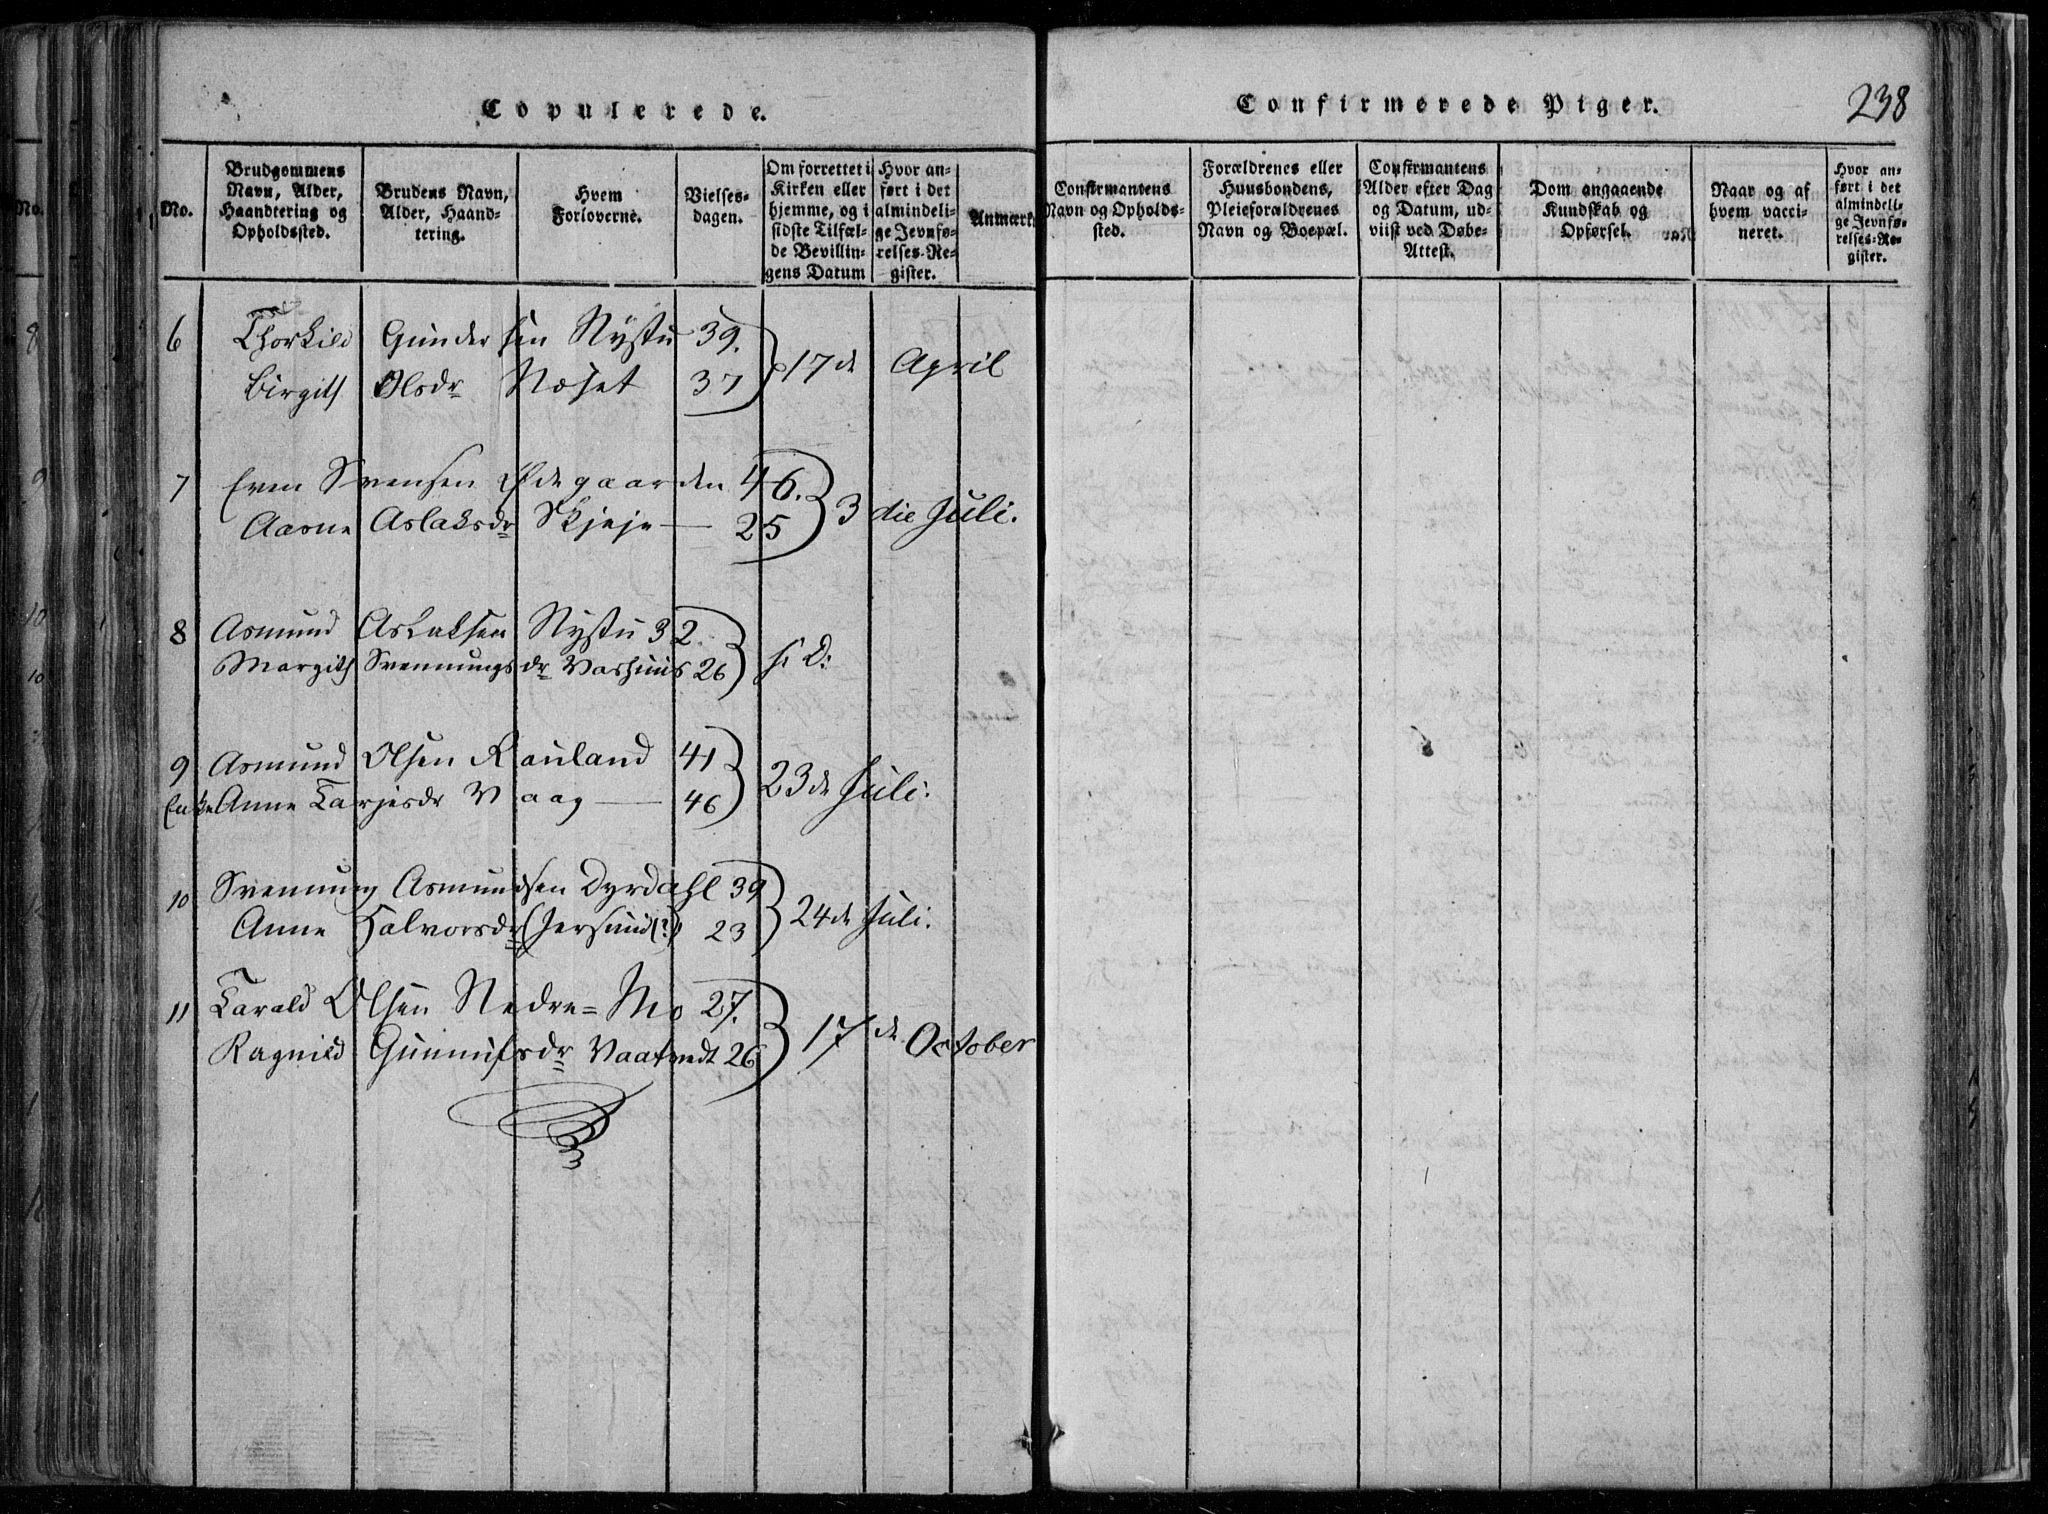 Copulerede.
No.
Brudgommens Navn, Alder, Haandtering og Opholdssted.
Brudens Navn, Alder, Haandtering.
Hvem Forloverne.
Vielses-dagen.
Om forrettet i Kirken eller hjemme, og i sidste Tilfælde Bevillingens Datum
Hvor anført i det almindelige Jevnførelses-Register.
Anmærk
6 Thorkild Gundersen Nystu 39.
Birgith Olsdr Næset 37 } 17de April
7 Even Svensen Ødegaarden 46.
Aasne Aslaksdr Skjeje — 25 } 3die Juli.
8 Asmund Aslaksen Nystu 32.
Margith Svennungsdr Vashuus 26 } s: D:
9 Asmund Olsen Rauland 41
Enke Anne Tarjesdr Vaag — 46 } 23de Juli.
10 Svennung Asmundsen Dyrdahl 39
Anne Halvorsdr (Jersund(?) 23 } 24de Juli.
11 Tarald Olsen Nedre=Mo 27.
Ragnild Gunnulfsdr Vaatvedt 26 } 17de October
Confirmerede Piger.
238
Confirmantens Navn og Opholdssted.
Forældrenes eller Huusbondens, Pleieforældrenes Navn og Boepæl.
Confirmantens Alder efter Dag og Datum, udviist ved Døbe-Attest.
Dom angaaende Kundskab og Opførsel.
Naar og af hvem vaccineret.
Hvor anført i det almindelige Jevnførelses-Register.